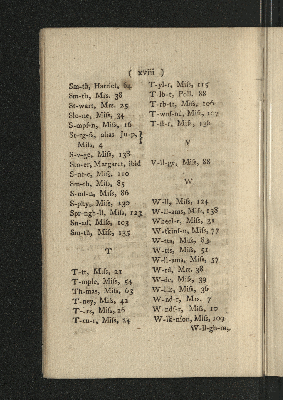 ( xviii )
Sm-th, Harriet, 64
Sm-th, Mrs. 38
St-wart, Mrs. 25
Slo-ne, Miss, 34
S-mps-n, Miss, 16
Miss, 4
S-v-ge, Miss, 138
Sin-er, Margaret, ibid
S-nt-c, Miss, 110
Sm-th, Miss, 85
Miss, 86
S-phy, Miss, 130
Spr-ngh-ll, Miss, 123
Miss, 103
Sm-th, Miss, 135
T
T-tt, Miss, 21
T-mple, Miss, 54
Th-mas, Miss, 63
T-ney, Miss, 42
Miss, 26
Miss, 24
T-yl-r, Miss, 115
T-lb-t, Poll, 88
T-rb-tt, Miss, 106
T-wnf-nd, Miss, 57
T-ll-t, Miss, 136
V
V-ll-gr, Miss, 88
W
W-ll, Miss, 124
W-ll-ams, Miss, 138
Wheel-r, Miss, 31
W-tkinf-n, Miss, 77
Miss, 83
W-tts, Miss, 51
W-ll-ams, Miss, 57
W-rd, Mrs. 38
W-de, Miss, 39
Miss, 36
W-rd-r, Mrs. 7
W-ndf-r, Miss, 10
W-lk-nson, Miss, 109
W-ll-gh-m,